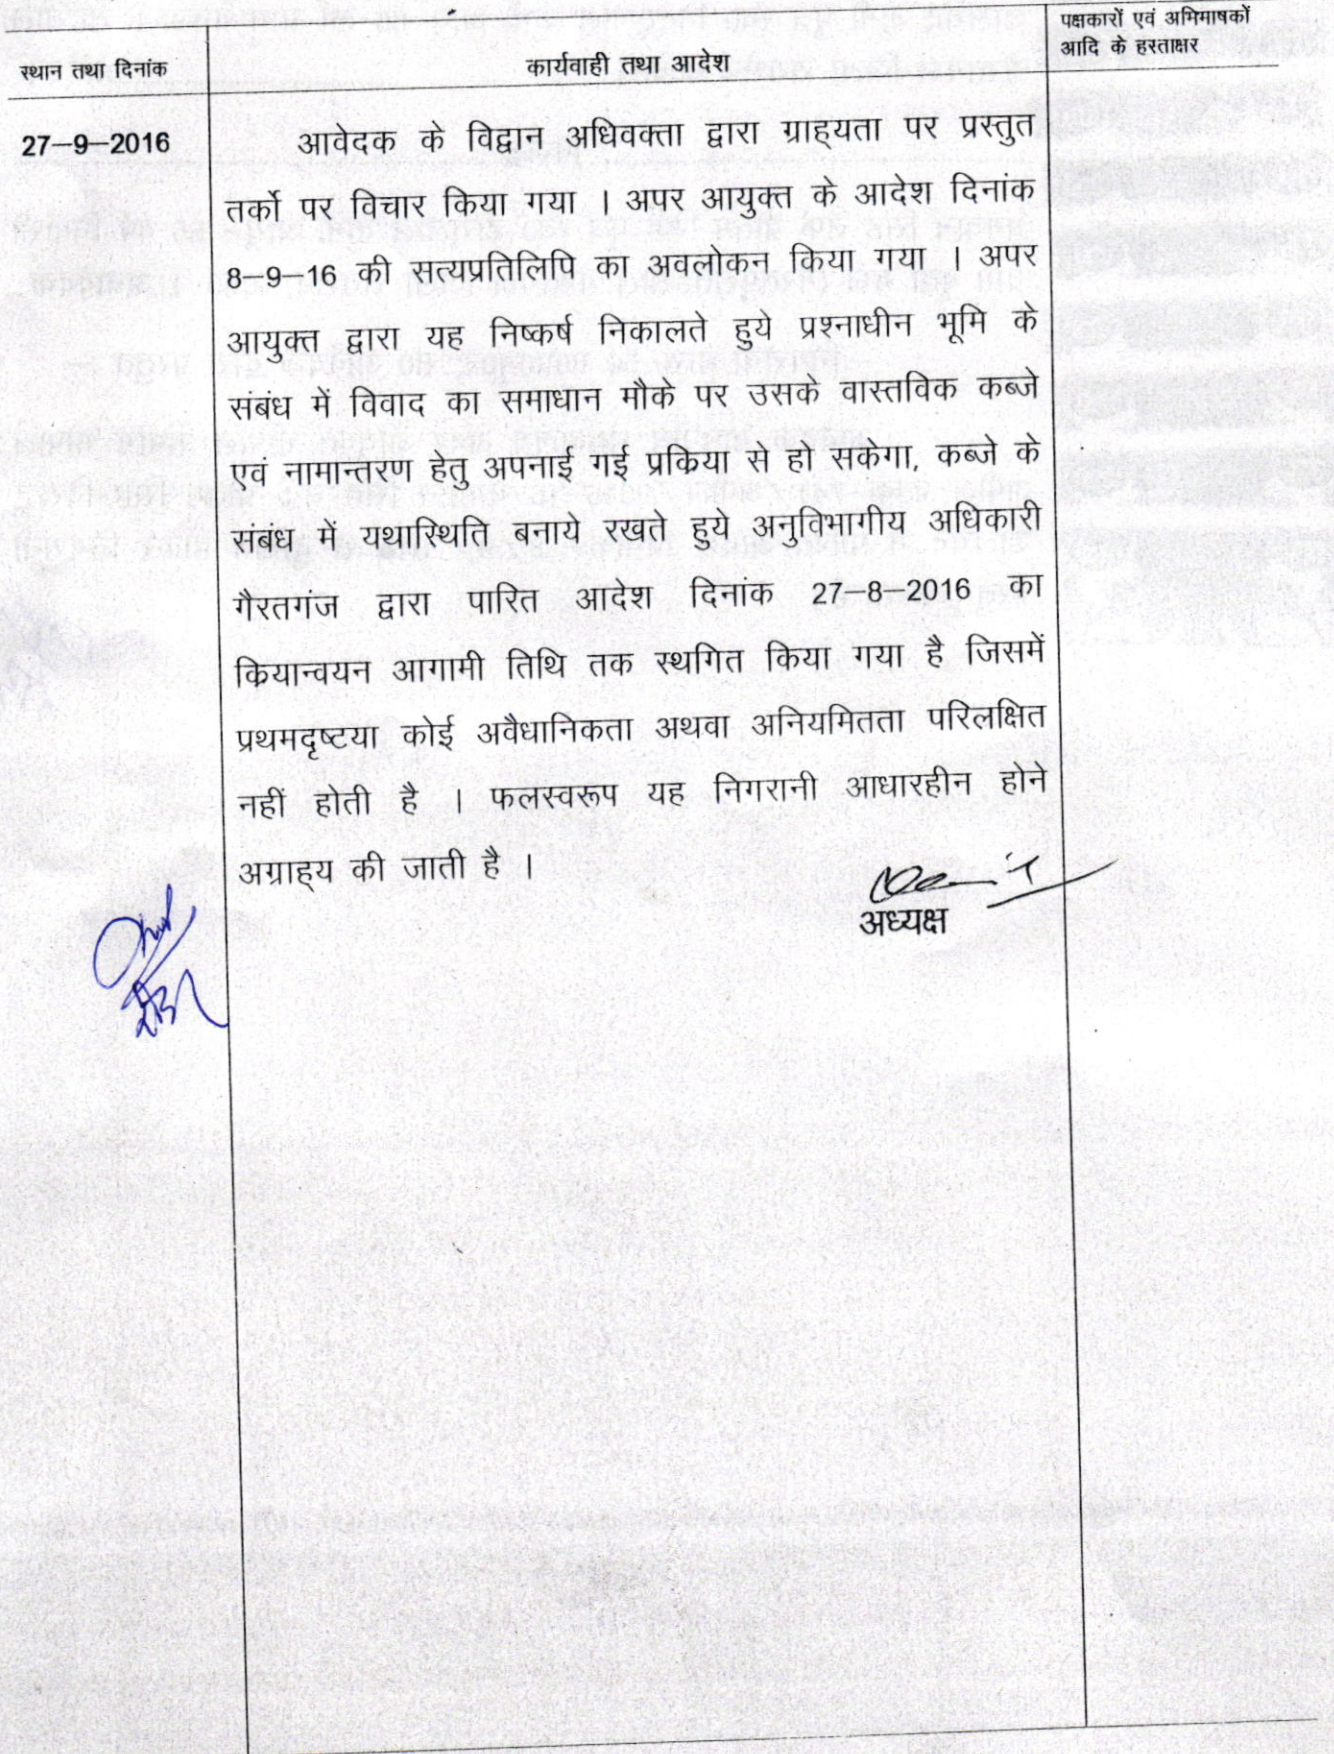 स्थान तथा दिनांक
कार्यवाही तथा आदेश
पक्षकारों एवं अभिभाषकों
आदि के हस्ताक्षर
27–9–2016
आवेदक के विद्वान अधिवक्ता द्वारा ग्राह्यता पर प्रस्तुत
तर्को पर विचार किया गया । अपर आयुक्त के आदेश दिनांक
8–9–16 की सत्यप्रतिलिपि का अवलोकन किया गया । अपर
आयुक्त द्वारा यह निष्कर्ष निकालते हुये प्रश्नाधीन भूमि के
संबंध में विवाद का समाधान मौके पर उसके वास्तविक कब्जे
एवं नामान्तरण हेतु अपनाई गई प्रकिया से हो सकेगा, कब्जे के
संबंध में यथास्थिति बनाये रखते हुये अनुविभागीय अधिकारी
गैरतगंज द्वारा पारित आदेश दिनांक 27–8–2016 का
कियान्वयन आगामी तिथि तक स्थगित किया गया है जिसमें
प्रथमदृष्टया कोई अवैधानिकता अथवा अनियमितता परिलक्षित
नहीं होती है । फलस्वरूप यह निगरानी आधारहीन होने
अग्राह्य की जाती है ।
अध्यक्ष